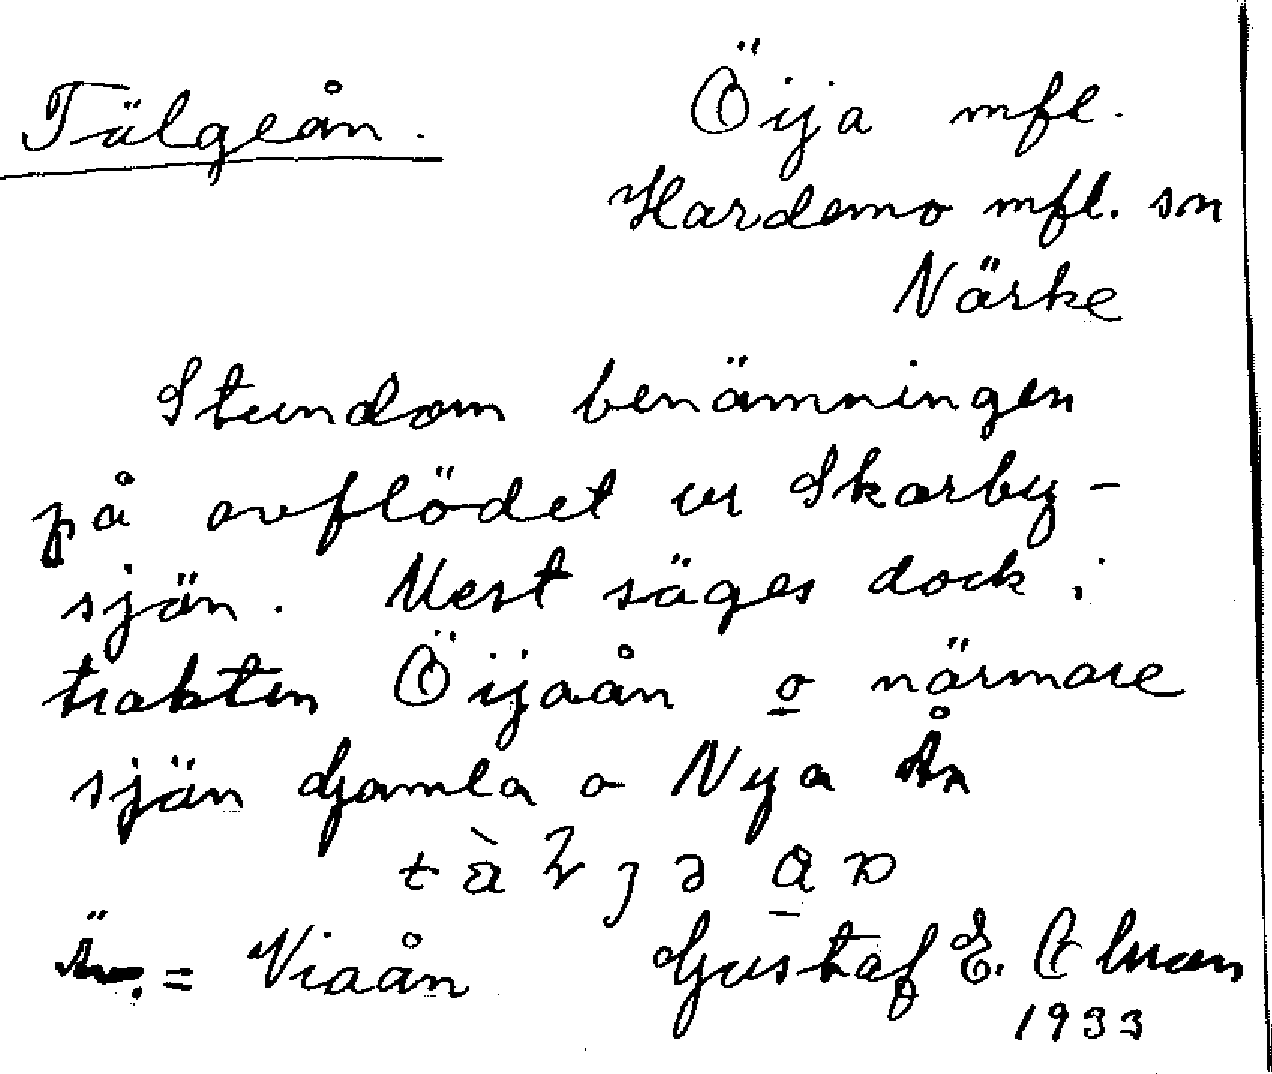 Tälgeån. Öija mfl.
Hardemo mfl. sn
Närke
Stundom benämningen
på avflödet ur Skarby-
sjön. Mest säges dock i
trakten Öijaån o närmare
sjön Gamla o Nya Ån
= Viaån Gustaf E.
1933